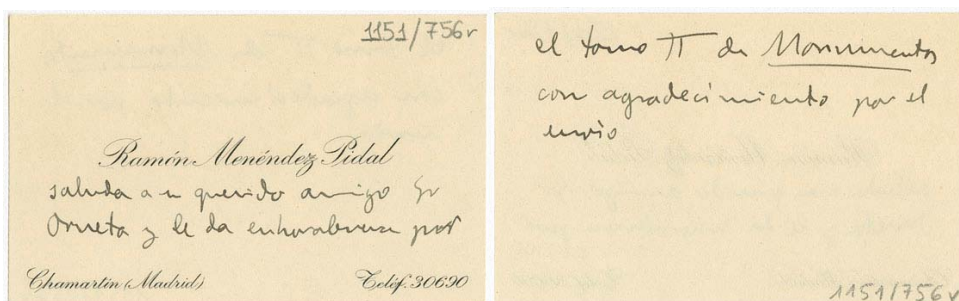 1151/756r
Ramón Menéndez Pidal
saluda a su querido amigo Sr
Orueta y le da enhorabuena por
Chamartín (Madrid)
Teléf. 30690
el tomo II de Monumentos
con agradecimiento por el
envio
1151/756v